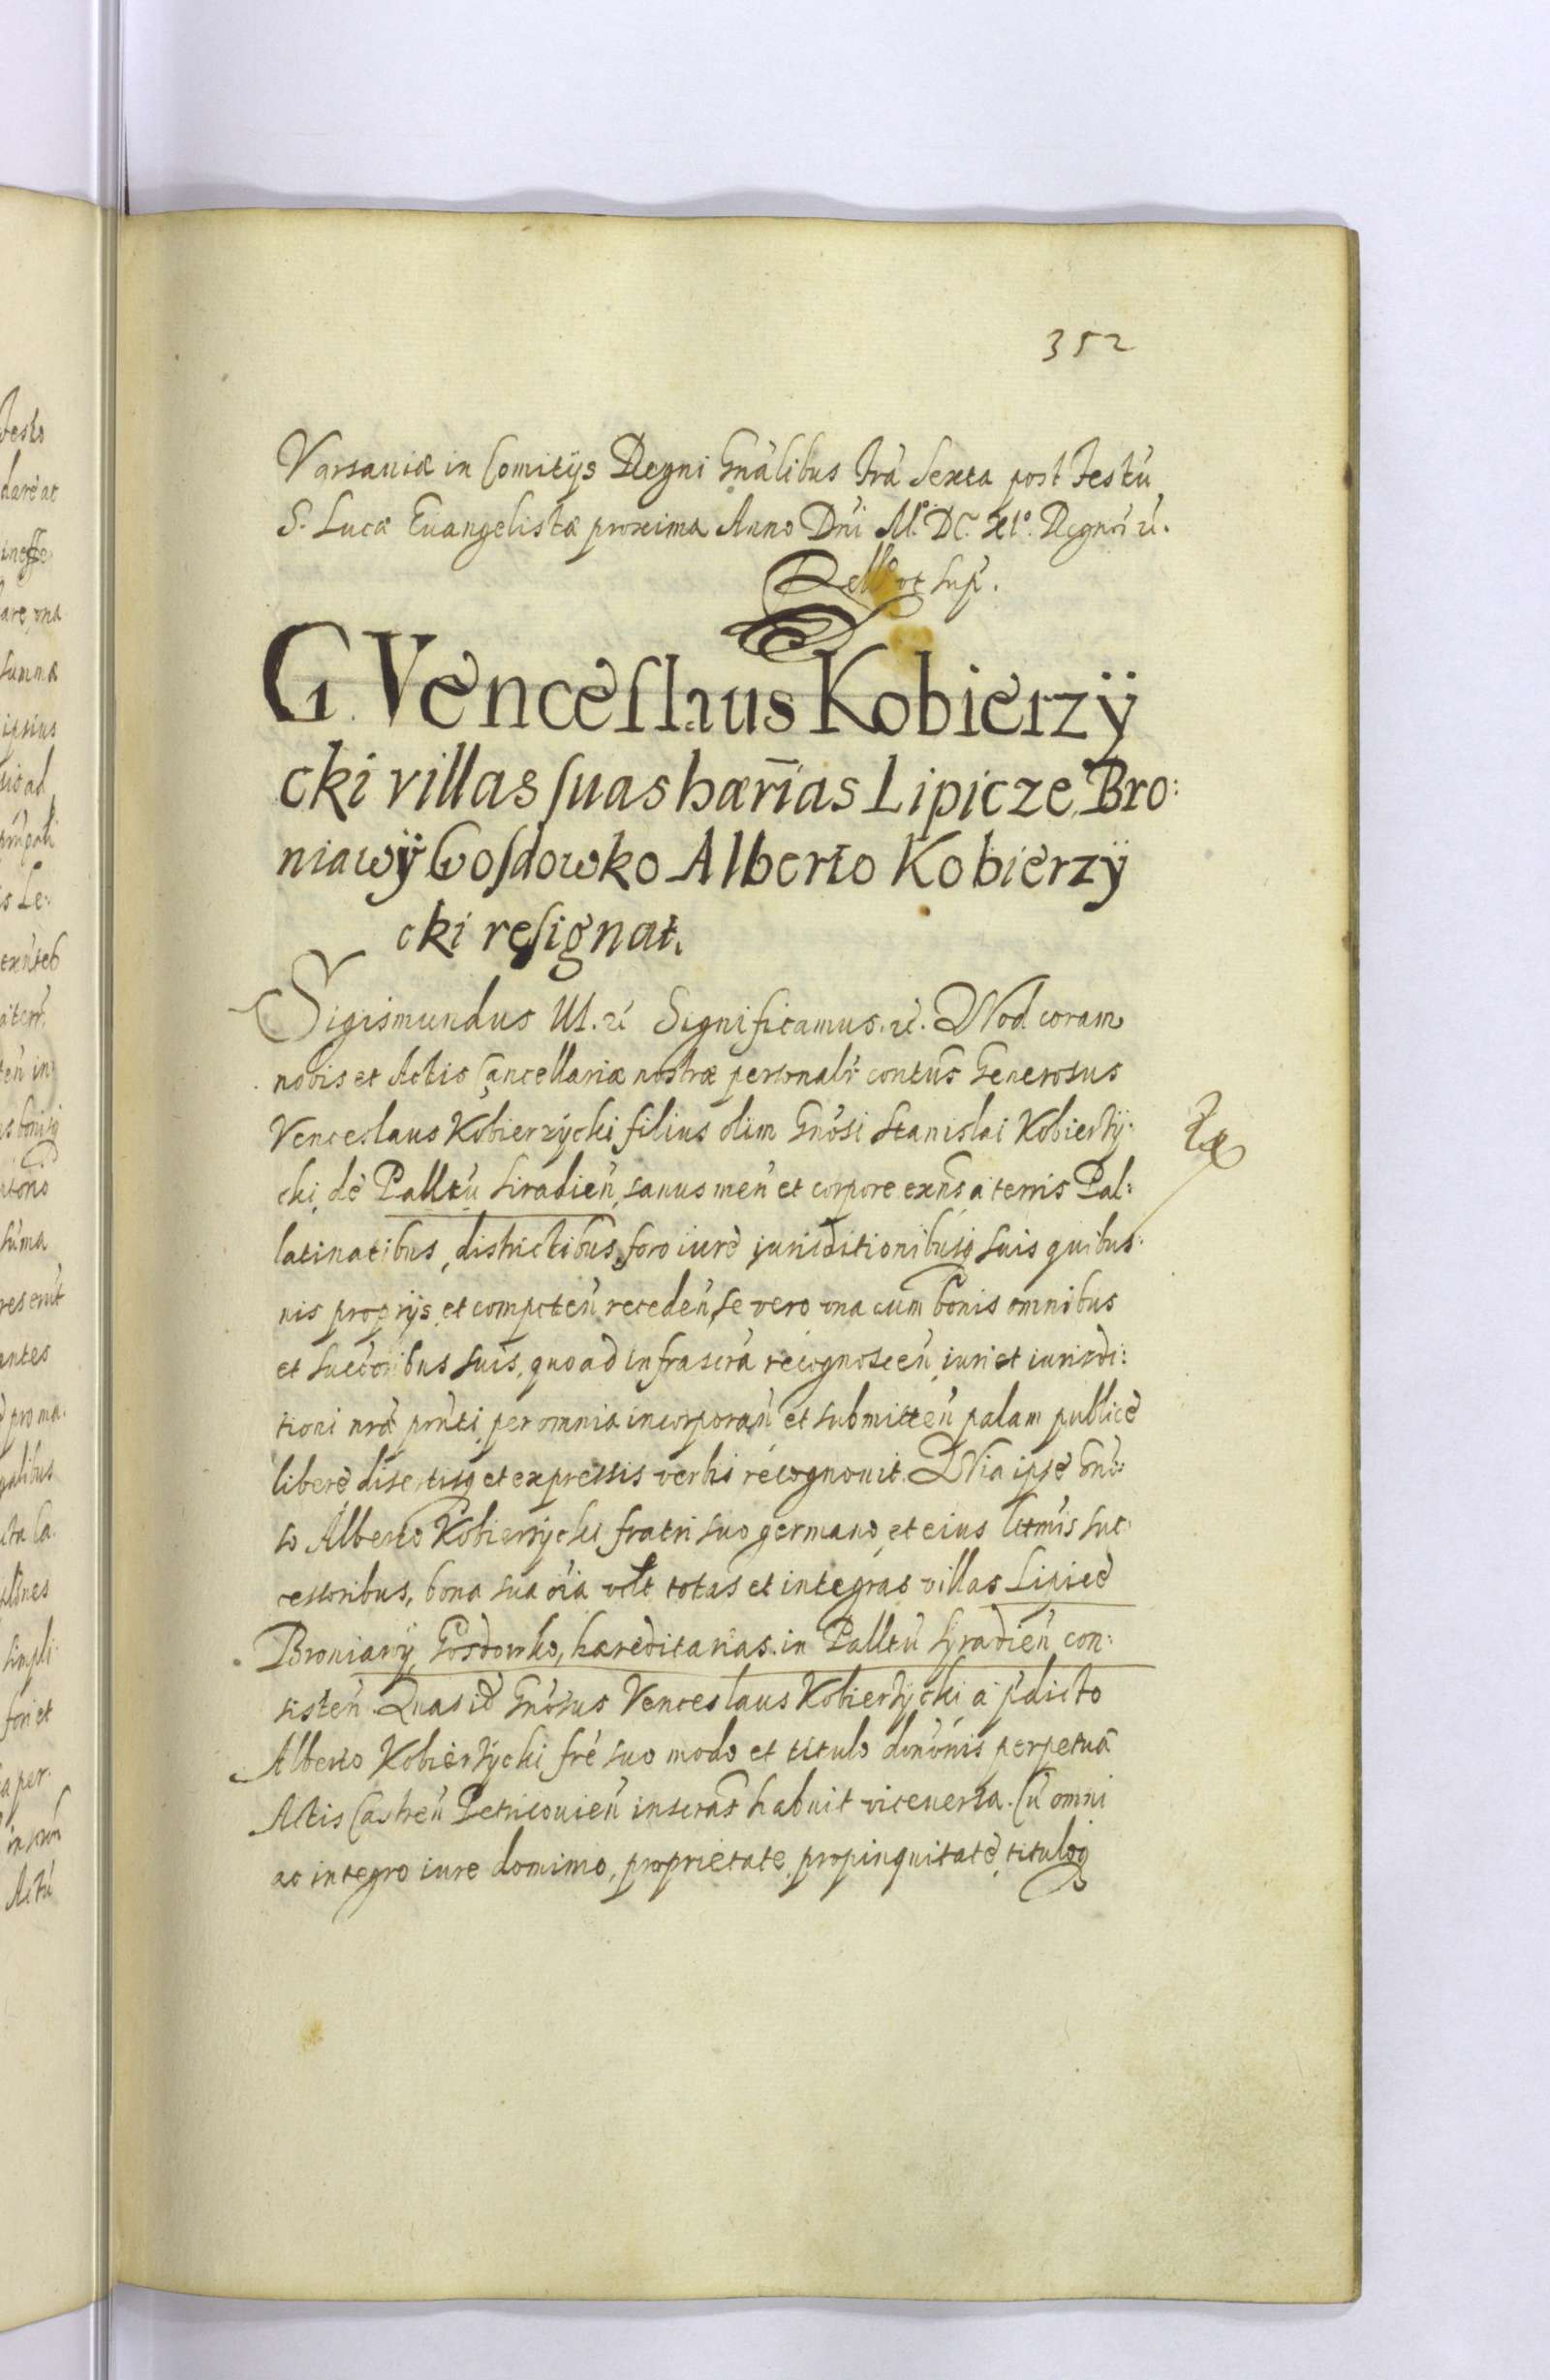 352
Varsauiæ in Comitijs Regni Gnãlibus Fra Sexta post Festũ
S. Lucæ Euangelistæ proxima Anno Dni M.º DC. XI.º Regnor ꝛc.
Rello ut sup.
G Venceslaus Kobierzÿ
cki villas suas hærias Lipicze Bro:
niawÿ Gosdowko Alberto Kobierzÿ
cki resignat.
Sigismundus III. ꝛc Significamus. ꝛc. Quod coram
nobis et Actis Cancellariæ nostræ personalr contus Generosus
Venceslaus Kobierzycki filius olim Gnosi Stanislai Kobierzÿ:
cki, de Palltu Siradien, sanus men et corpore exns a terris Pal:
latinatibus, districtibus, foro iure jurisditionibusq suis quibus:
nis proprijs et competen receden, se vero una cum bonis omnibus
et succoribus suis, quoad infrascra recognoscen, iuri et iurisdi:
tioni nræ pnti per omnia incorporan et submitten palam publice
libere disertisq et expressis verbis recognouit. Quia ipse Gno:
so Alberto Kobierzycki fratri suo germano, et eius ltmis suc:
cessoribus, bona sua oia vilt totas et integras villas Lipicze
Broniawÿ, Gosdowko, hæreditarias in Palltu Syradien con:
sisten. Quas id Gnosus Venceslaus Kobierzÿcki a pdicto
Alberto Kobierzÿcki fre suo modo et titulo dononis perpetuæ
Actis Castren Petricouien inscrat habuit viceuersa. Cu omni
ac integro iure dominio, proprietate, propinquitate, tituloq